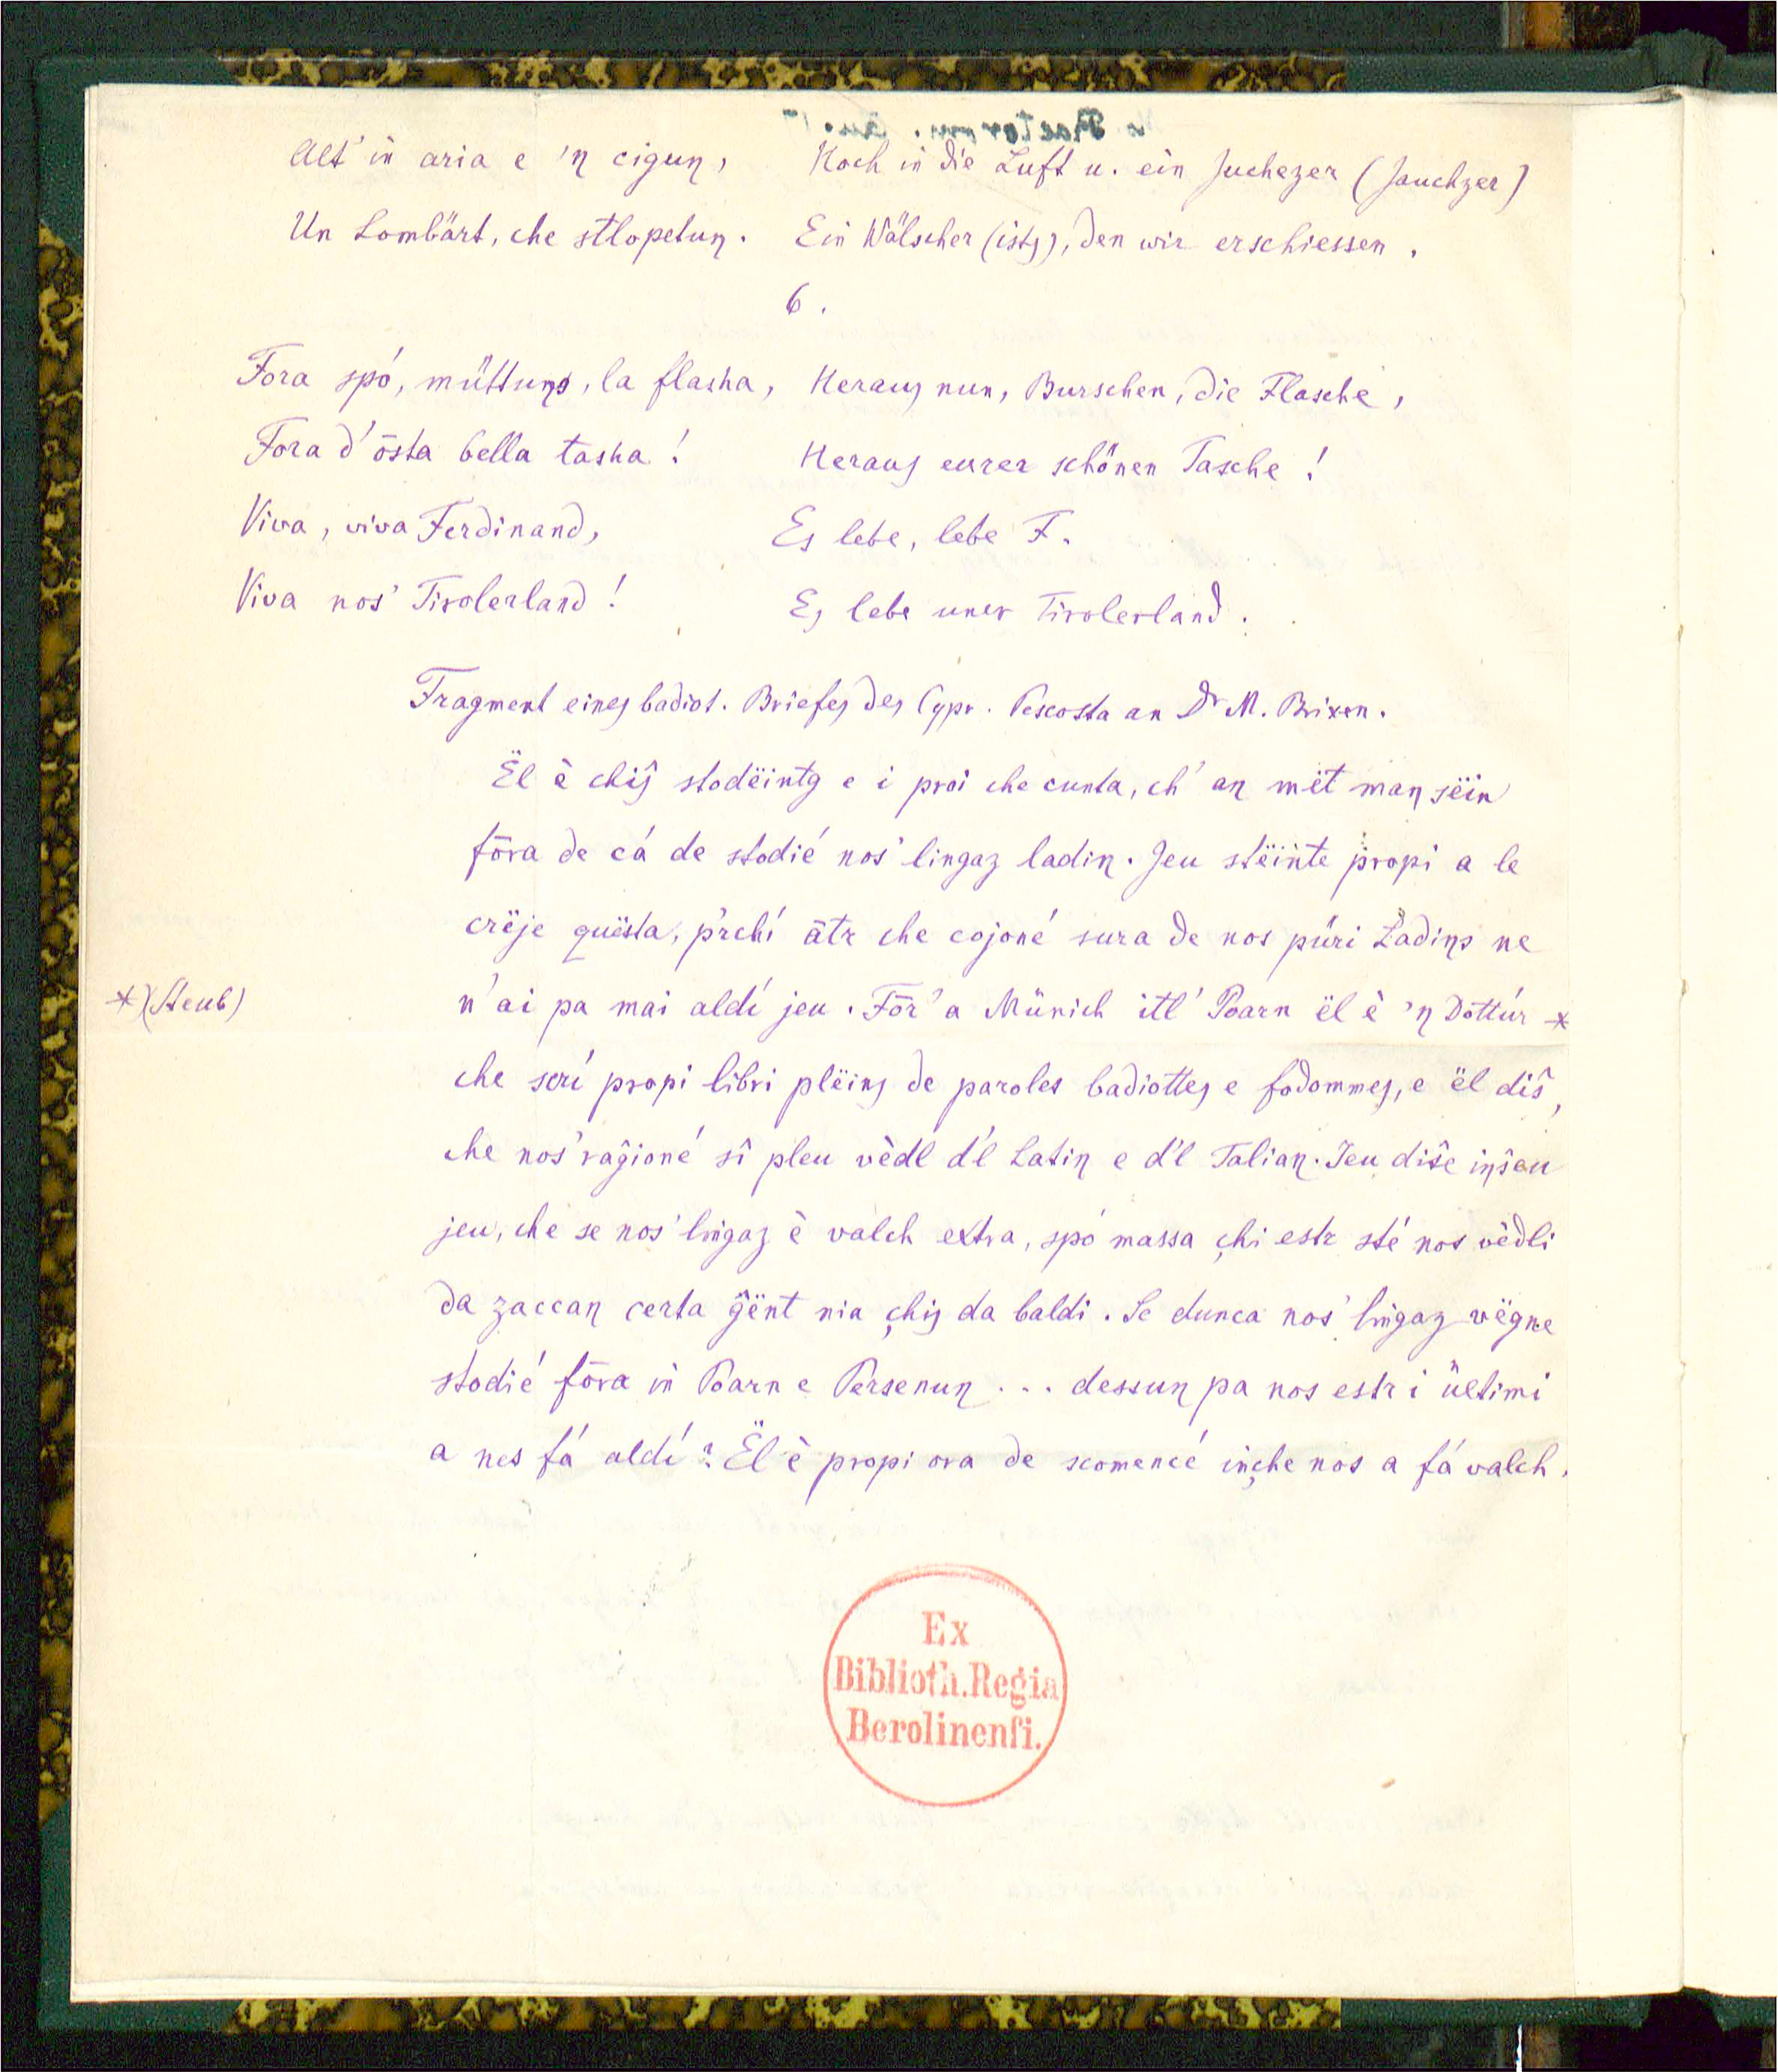 Alt' in aria e 'ŋ ciguŋ, Hoch in die Luft u. ein Juchezer (Jauchzer)
Un Lombärt, che stlopetuŋ. Ein Wälscher (ists), den wir erschiessen.
6.
Fora spó, müttuŋs, la flasha, Heraus nun, Burschen, die Flasche,
Fora d'ōsta bella tasha! Heraus eurer schönen Tasche!
Viva, viva Ferdinand, Es lebe, lebe F.
Viva nos' Tirolerland! Es lebe unser Tirolerland.
Fragment eines badiot. Briefes des Cypr. Pescosta an Dr M. Brixen.
Ël è chiŝ stodëintg e i proi che cunta, ch' aŋ mët maŋ sëin
fōra de cá de stodié nos' lingaz ladiŋ. Jeu stëinte propi a le
crëje quësta, p'rchí ātr che cojoné sura de nos püri Ladiŋs ne
*)(Steub) n'ai pa mai aldí jeu. Fōr' a Münich itl' Poarn ël è 'ŋ Dottúr *
che scrí propi libri plëins de paroles badiottes e fodommes, e ël diŝ,
che nos' raĝioné sî pleu vèdl d'l Latiŋ e d'l Taliaŋ. Jeu diŝe iŋŝeu
jeu, che se nos' lingaz è valch extra, spó massa çhi estr sté nos vèdli
da zaccaŋ certa ĝënt nia çhis da baldi. Se dunca nos' lingaz vëgne
stodié fōra in Poarn e Persenuŋ ... dessuŋ pa nos estr i ültimi
a nes fá aldí? Ël è propi ora de scomencé inçhe nos a fá valch.
Ex
Biblioth. Regia
Berolinenſi.